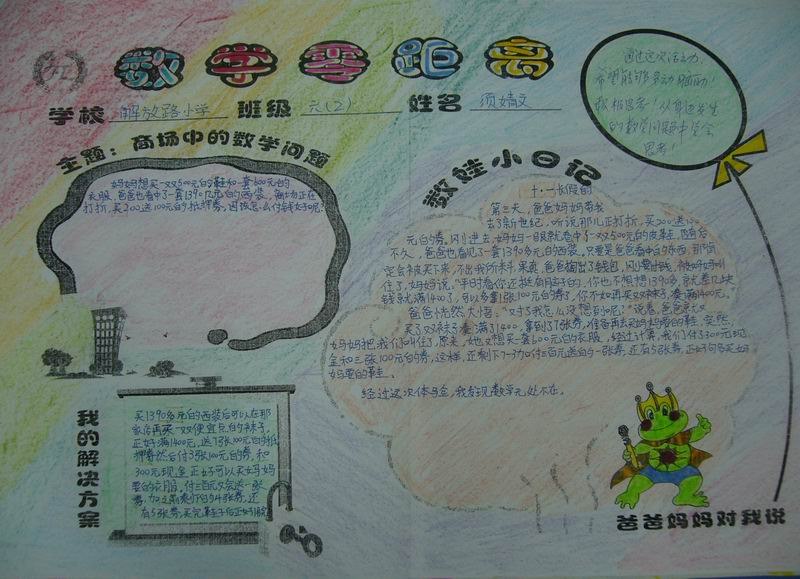 数学零距离
学校 解放路小学 班级 六(2) 姓名 须婧文
主题：商场中的数学问题
妈妈想买一双500元的鞋和一套600元的
衣服，爸爸也看中了一套1390几元的西装，商场正在
打折，买200送100元的抵押券，因该怎么付钱好呢？
我的解决方案
买1390多元的西装后可以在那
家店再买一双便宜点的袜子，
正好满1400元，送7张100元的抵
押券然后付3张100元的券，和
300元现金正好可以买好妈妈
要的衣服，付三百元又会送一张
券，加之前剩下的4张券，还
有5张券，买完鞋子后正好用完
数娃小日记
十·一长假的
第二天，爸爸妈妈带我
去了新世纪，听说那儿正打折，买200送100
元的券，刚进去，妈妈一眼就看中了一双500元的皮鞋，随后
不久，爸爸也看见了一套1390多元的西装。只要是爸爸看中的东西，那肯
定会被买下来，不出我所料，果真，爸爸掏出了钱包，刚要付钱，
住了，妈妈说，“平时看你还挺有脑子的，你也不想想1390多，就差几块
钱就满1400了，可以多拿1张100元的券了，你不如再买双袜子，凑满1400元。”
爸爸恍然大悟，“对了我怎么没想到呢？”说着，爸爸就去又
买了双袜子凑满了1400，拿到了7张券，准备再去买妈妈看的鞋，突然，
妈妈把我们叫住了，原来，她又想买一套600元的衣服，经过计算，我们付300元现
金和三张100元的券，这样，正剩下4张加付三百元送的一张券，还有5张券，正好可多买妈
妈要的鞋。
经过这次体会，我发现数学无处不在。
通过这次活动，
希望能够多动脑筋！
的数学问题中学会
思考！
爸爸妈妈对我说